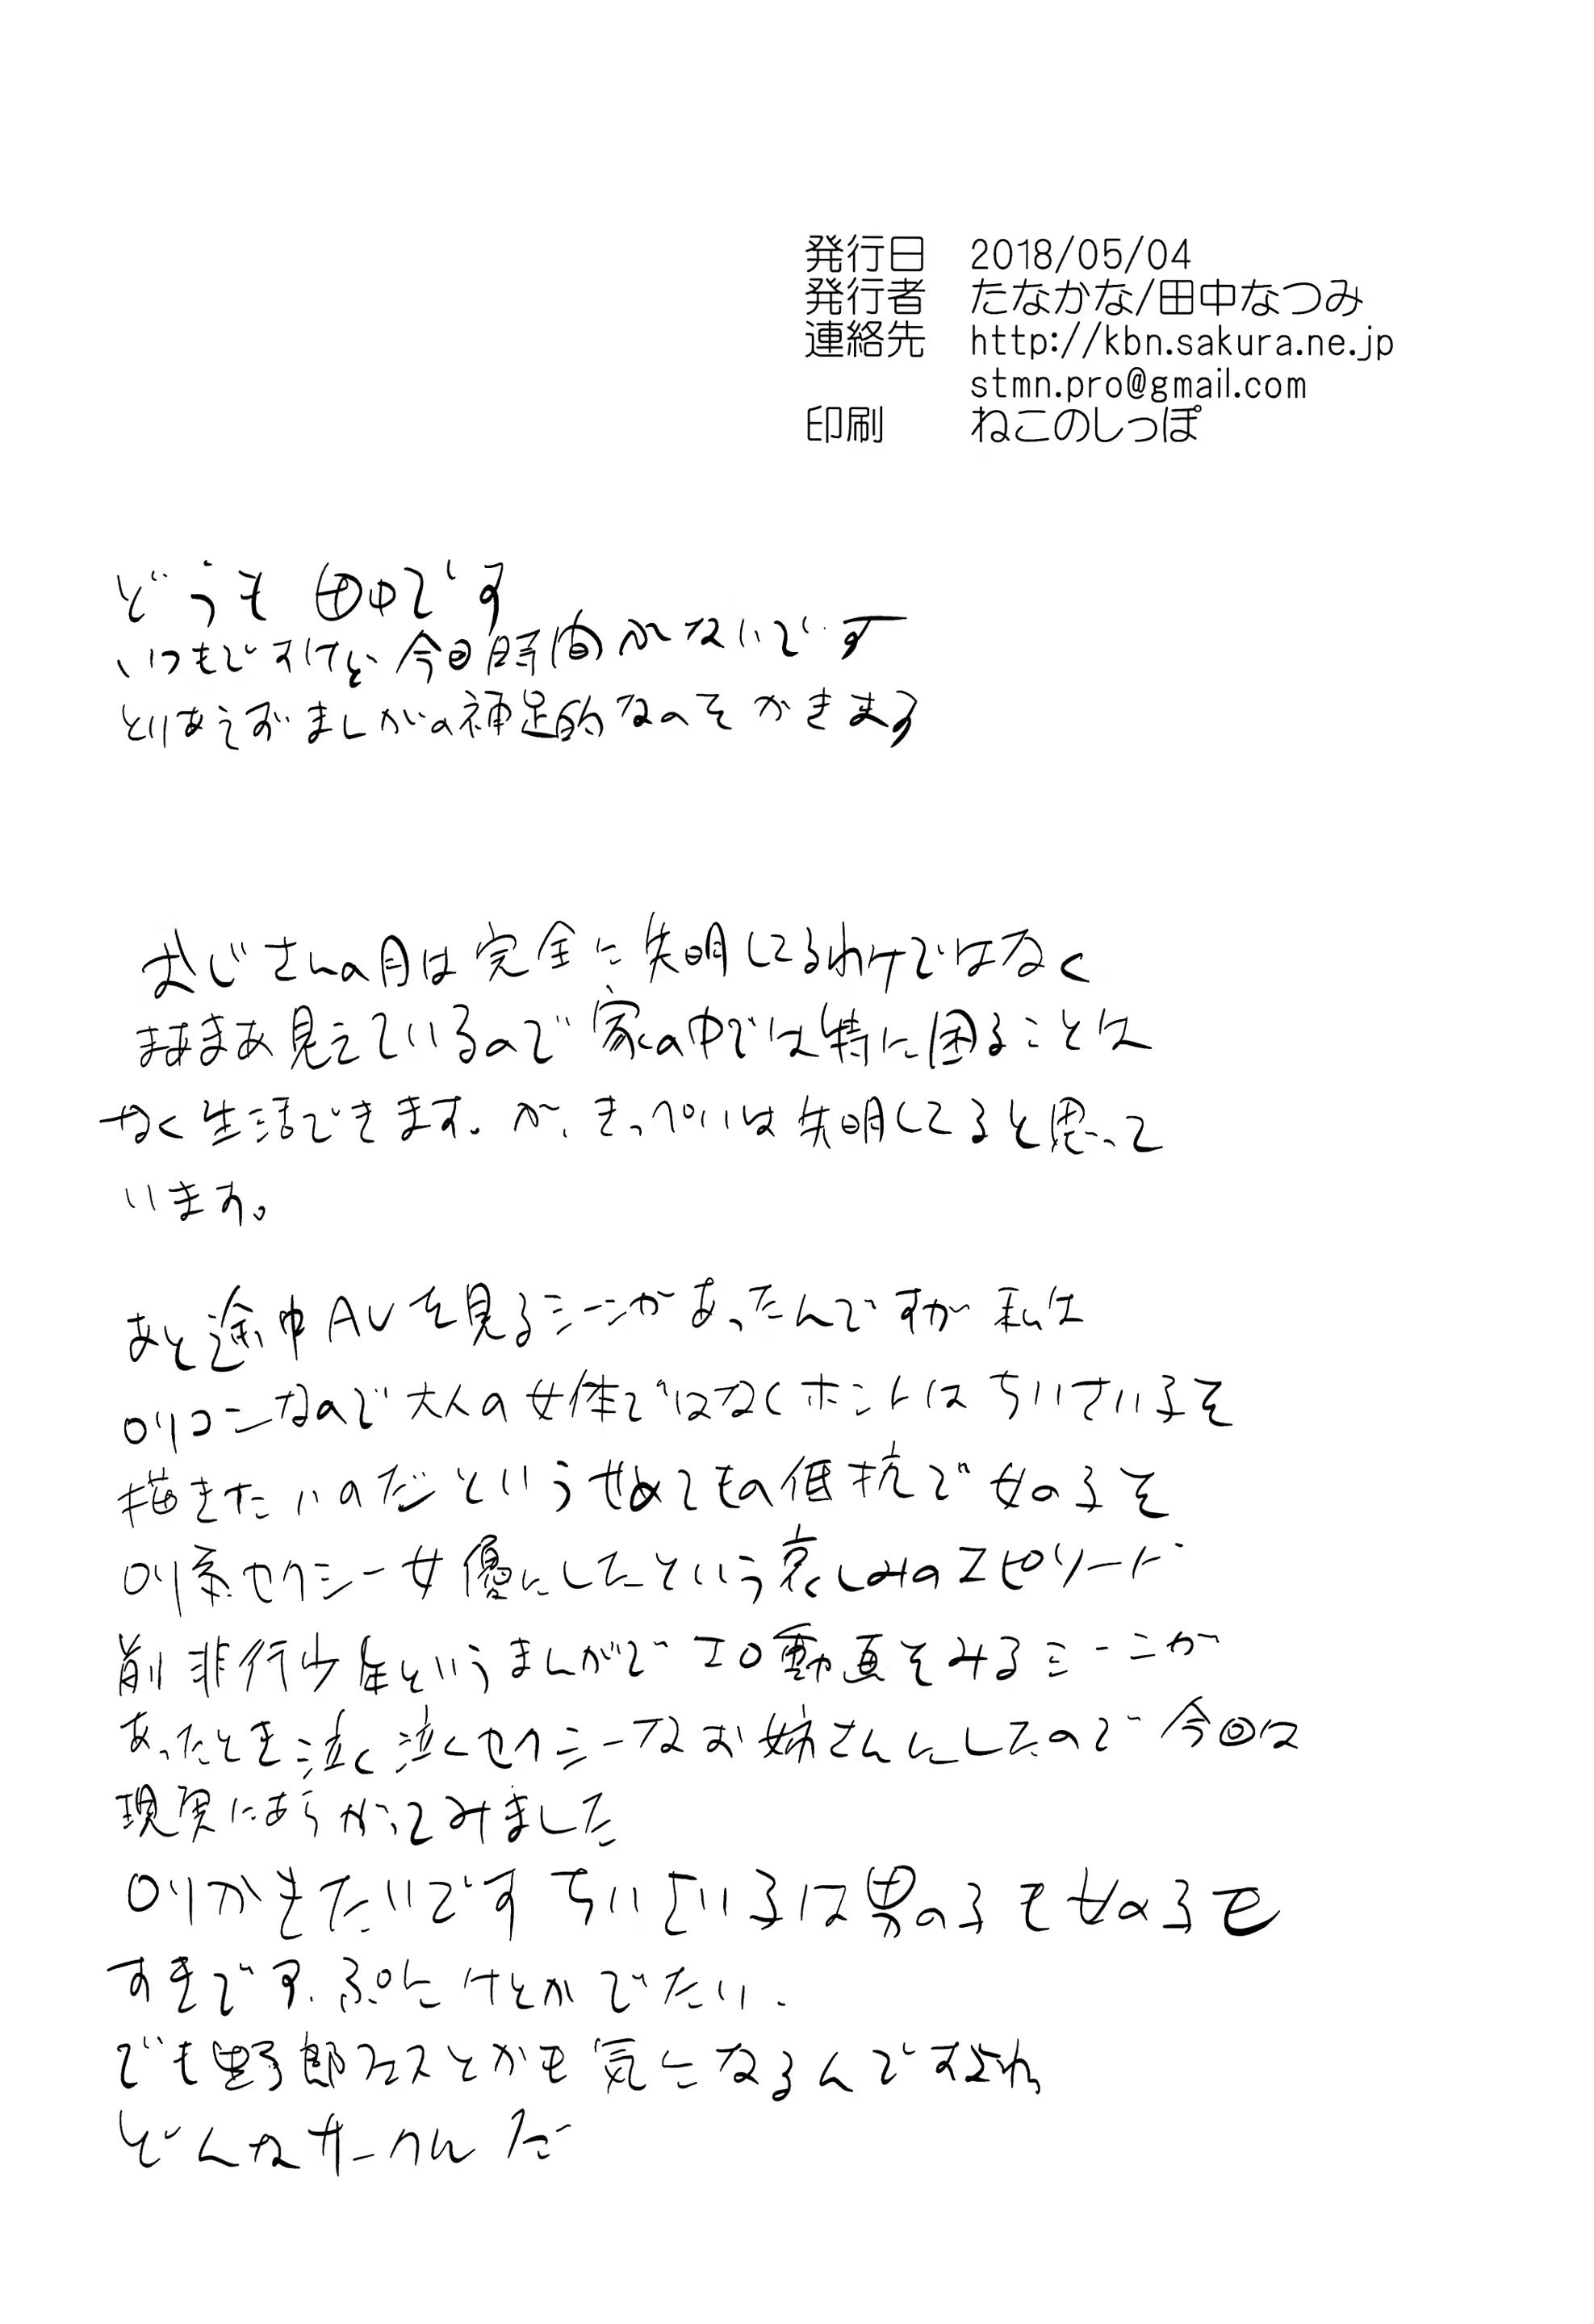 発行日 2018/05/04
発行者 たなかな/田中なつみ
連絡先 http://kbn.sakura.ne.jp
stmn.pro@gmail.com
印刷 ねこのしっぽ
どうも 田中です
いつもですけど 今回時間がないです
とりあえず まんがの補足的なのをかきます
おじさんの目は完全に失明してるわけではなく
まあまあ見えているので家の中では特に困ることは
なく生活できます。が、きっぺいは失明してると思って
います。
あと途中AVを見るシーンがあったんですが 私は
ロリコンなので大人の女体ではなくホントはちいさい子を
描きたいのだというせめてもの低抗で女の子を
ロリ系セクシー女優にしたという哀しみのエピソード
前非行少年というまんがでエロ動画をみるシーンが
あったとき泣く泣くセクシーなお姉さんにしたので今回は
現実にあらがってみました
ロリかきたいです ちいさい子は男の子も女の子も
すきです、ぷにけとかでたい、
でも野郎フェスとかも気になるんですよね
どんなサークルだ